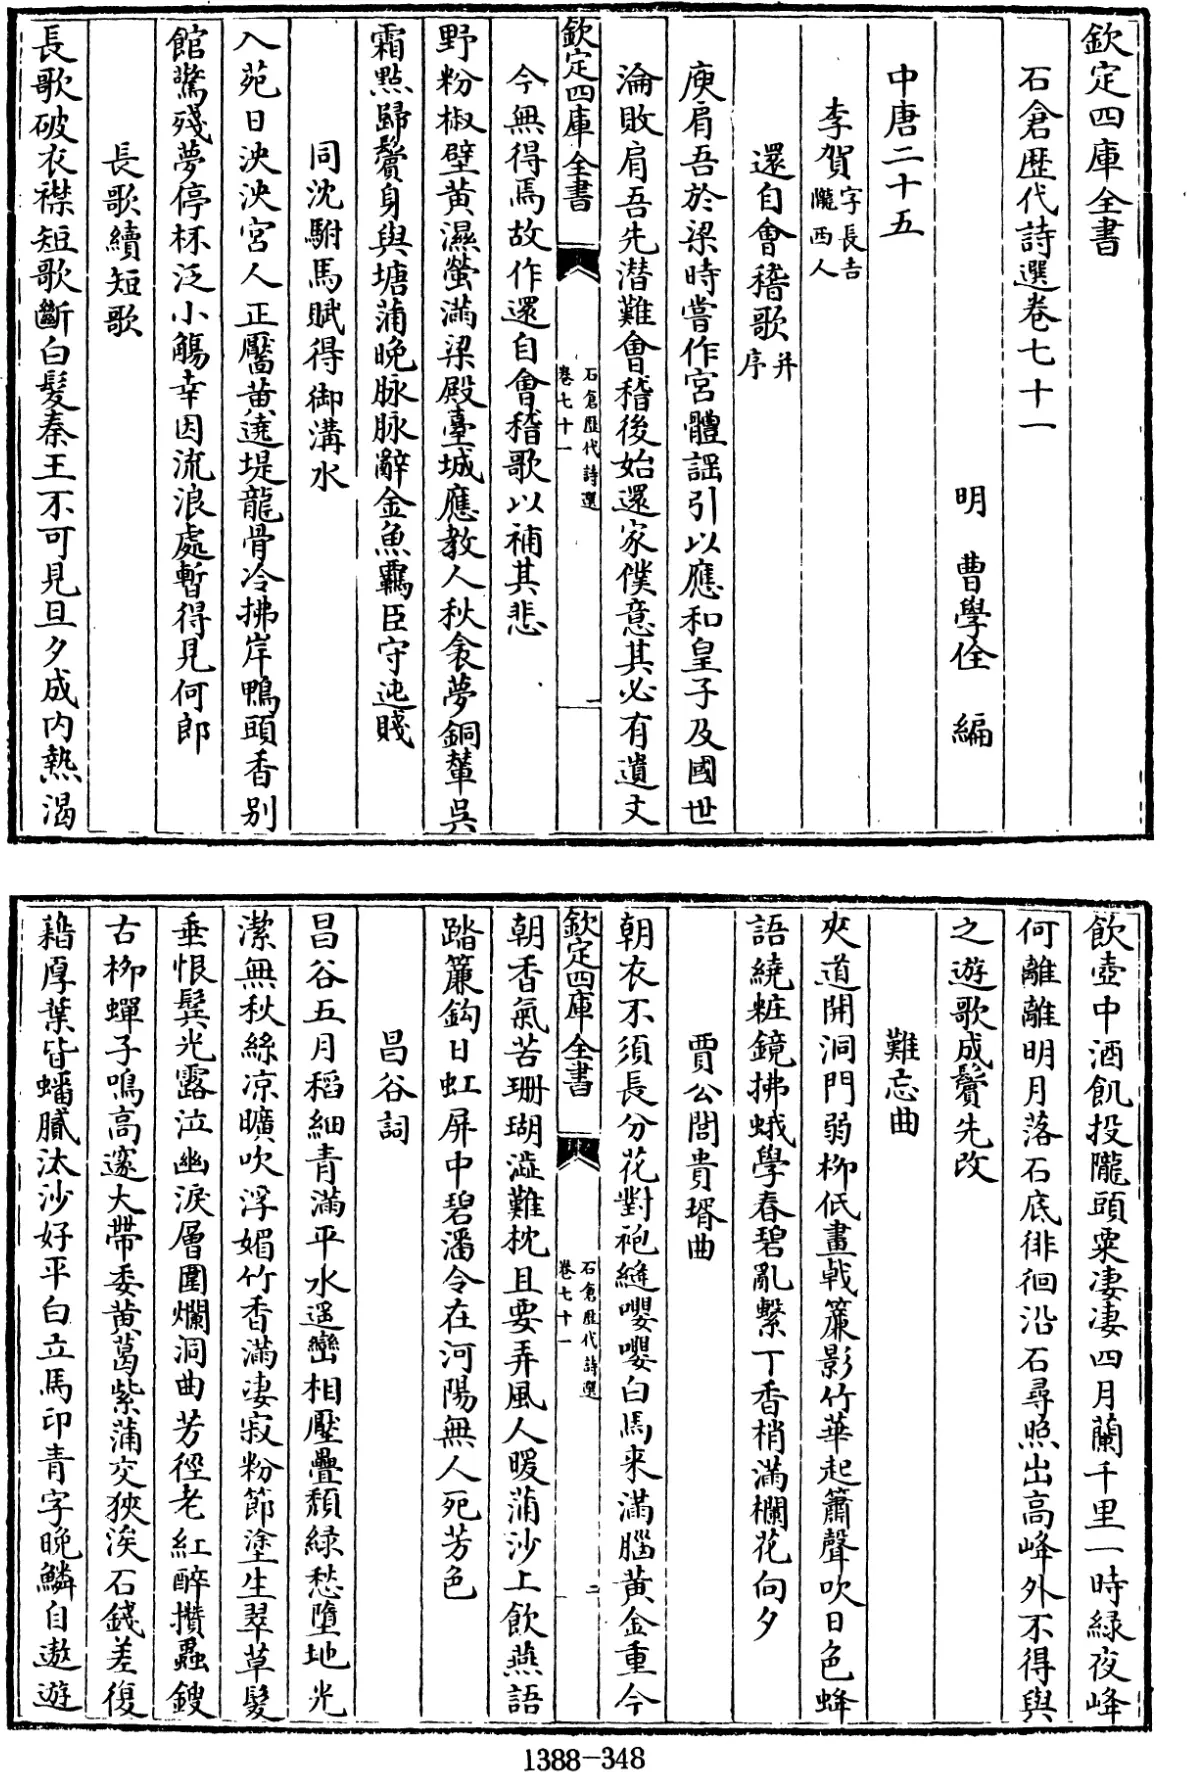 欽定四庫全書
石倉歷代詩選卷七十一
明 曹學佺 編
中唐二十五
李賀字長吉隴西人
還自會稽歌并序
庾肩吾於梁時嘗作宮體謡引以應和皇子及國世
淪敗肩吾先潜難會稽後始還家僕意其必有遺文
欽定四庫全書
石倉歷代詩選
卷七十一
一
今無得焉故作還自會稽歌以補其悲
野粉椒壁黄濕螢滿梁殿臺城應教人秋衾夢銅輦吳
霜點歸鬢身與塘蒲晚脉脉辭金魚羈臣守迍賤
同沈駙馬賦得御溝水
入苑日泱泱宮人正靨黄遶堤龍骨冷拂岸鴨頭香别
館驚殘夢停杯泛小觴幸因流浪處暫得見何郎
長歌續短歌
長歌破衣襟短歌斷白髮秦王不可見旦夕成内熱渴
飲壺中酒飢投隴頭粟凄凄四月蘭千里一時緑夜峰
何離離明月落石底徘徊沿石尋照出高峰外不得與
之遊歌成鬢先改
難忘曲
夾道開洞門弱柳低畫戟簾影竹華起簫聲吹日色蜂
語繞粧鏡拂蛾學春碧亂繫丁香梢滿欄花向夕
賈公閭貴壻曲
朝衣不須長分花對袍縫嚶嚶白馬來滿腦黄金重今
欽定四庫全書
石倉歷代詩選
卷七十一
二
朝香氣苦珊瑚澁難枕且要弄風人暖蒲沙上飲燕語
踏簾鈎日虹屏中碧潘令在河陽無人死芳色
昌谷詞
昌谷五月稻細青滿平水遥巒相壓疊頽緑愁墮地光
潔無秋絲凉曠吹浮媚竹香滿凄寂粉節塗生翠草髮
垂恨鬢光露泣幽淚層圍爛洞曲芳徑老紅醉攅蟲鎪
古柳蟬子鳴高邃大帶委黄葛紫蒲交狹涘石錢差復
藉厚葉皆蟠膩汰沙好平白立馬印青字晚鱗自遨遊
1388-348